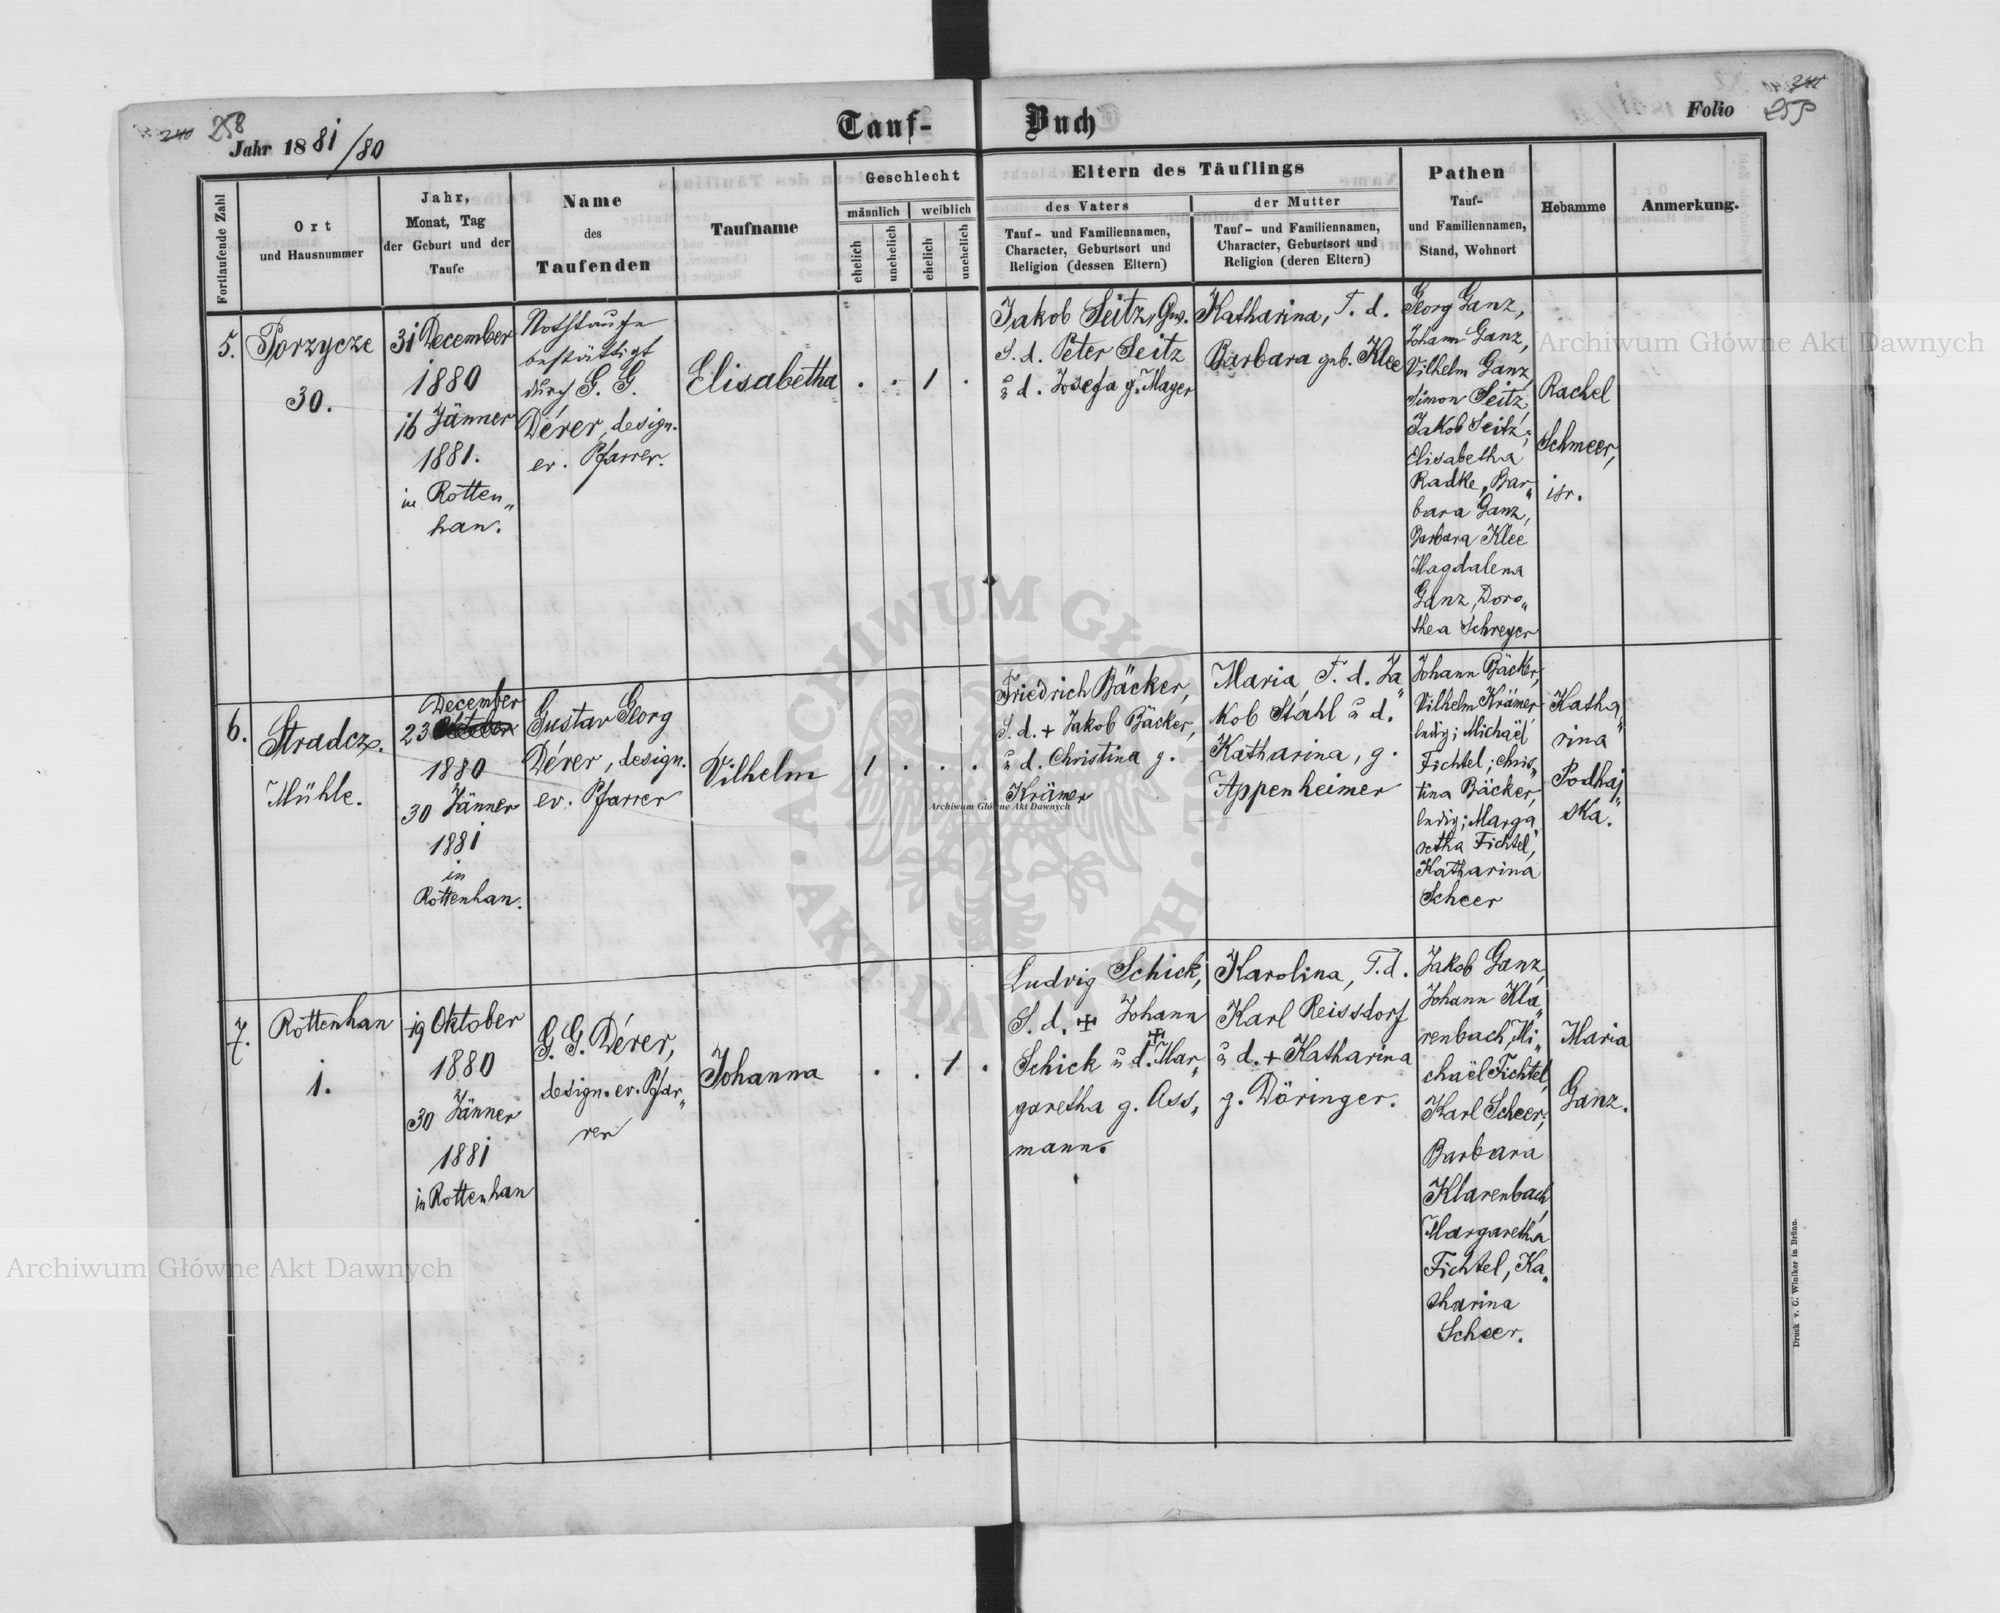 240 258
Jahr 1881/80
Tauf-
Buch
Folio
Fortlaufende Zahl
Ort
und Hausnummer
Jahr,
Monat, Tag
der Geburt und der
Taufe
Name
des
Taufenden
Taufname
Geschlecht
männlich
weiblich
ehelich
unehelich
ehelich
unehelich
Eltern des Täuflings
des Vaters
Tauf- und Familiennamen,
Character, Geburtsort und
Religion (dessen Eltern)
der Mutter
Tauf- und Familiennamen,
Character, Geburtsort und
Religion (deren Eltern)
Pathen
Tauf-
und Familiennamen,
Stand, Wohnort
Hebamme
Anmerkung.
5.
Porzycze
30.
31 December
1880
16 Jänner
1881.
in Rotten„
han.
Nothtaufe
bestättigt
durch G. G.
Dérer, design.
ev. Pfarrer.
Elisabetha
. . 1 .
Jakob Seitz, Gw.
S. d. Peter Seitz
u d. Josefa g. Mayer
Katharina, T. d.
Barbara geb. Klee
Georg Ganz,
Johann Ganz,
Vilhelm Ganz,
Simon Seitz,
Jakob Seitz;
Elisabetha
Radke, Bar„
bara Ganz,
Barbara Klee
Magdalena
Ganz, Doro„
thea Schreyer
Rachel
Schmeer,
isr.
6.
Stradcz.
Mühle.
December
23 Oktober
1880
30 Jänner
1881
in
Rottenhan.
Gustav Georg
Dérer, design.
ev. Pfarrer
Vilhelm
1 . . .
Friedrich Bäcker,
S. d. + Jakob Bäcker,
u d. Christina g.
Krämer
Maria T. d. Ja„
kob Stahl u d.
Katharina, g.
Appenheimer
Johann Bäcker,
Vilhelm Krämer
ledig; Michaël
Fichtel; Chris„
tina Bäcker,
ledig; Marga„
retha Fichtel,
Katharina
Scheer
Katha„
rina
Podhaj„
ska.
7.
Rottenhan
1.
19 Oktober
1880
30 Jänner
1881
in Rottenhan
G. G. Dérer,
design. ev. Pfar„
rer
Johanna
. . 1 .
Ludvig Schick,
S. d. ✠ Johann
Schick u d. ✠ Mar„
garetha g. Ass„
mann.
Karolina, T. d.
Karl Reissdorf
u d. + Katharina
g. Döringer.
Jakob Ganz,
Johann Kla„
renbach, Mi„
chaël Fichtel,
Karl Scheer;
Barbara
Klarenbach,
Margaretha
Fichtel, Ka„
tharina
Scheer.
Maria
Ganz.
Druck v. C. Winiker in Brünn.
Archiwum Główne Akt Dawnych
Archiwum Główne Akt Dawnych
Archiwum Główne Akt Dawnych
ARCHIWUM GŁÓWNE
AKT DAWNYCH